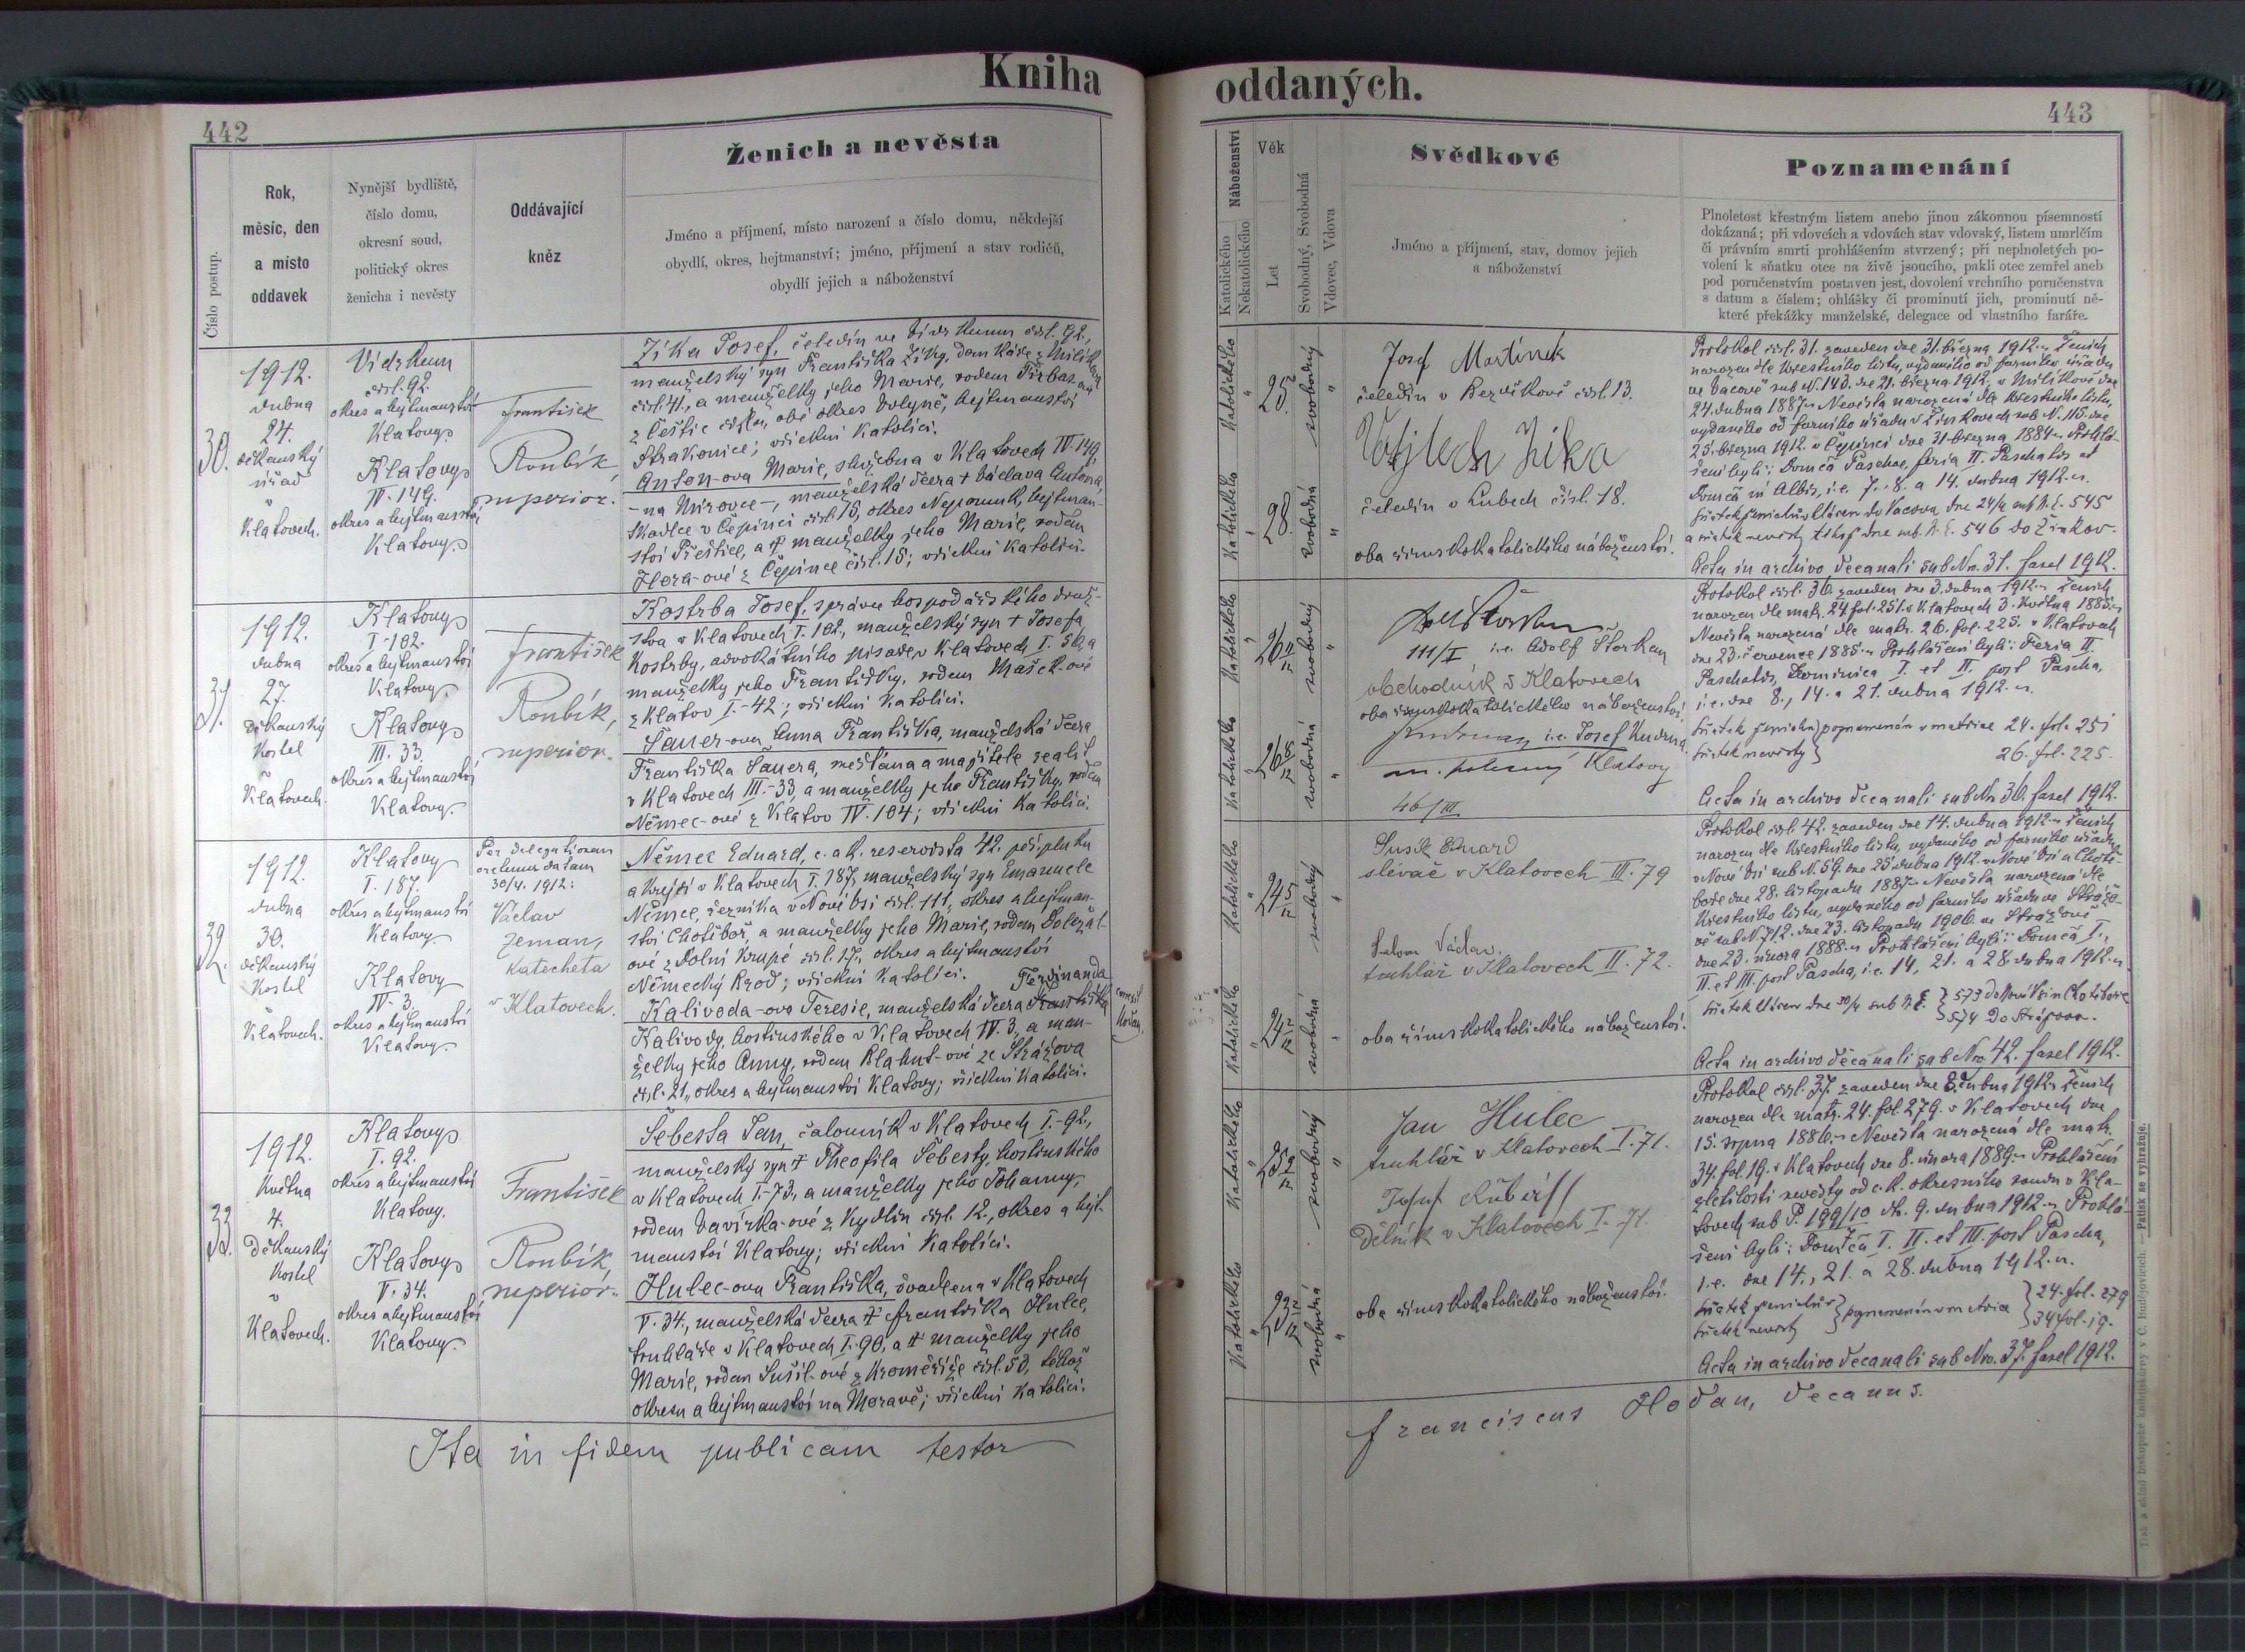 Kniha
442
Ženich a nevěsta
Číslo postup.
Rok,
měsíc, den
a místo
oddavek
Nynější bydliště,
číslo domu,
okresní soud,
politický okres
ženicha i nevěsty
Oddávající
kněz
Jméno a příjmení, místo narození a číslo domu, někdejší
obydlí, okres, hejtmanství; jméno, příjmení a stav rodičů,
obydlí jejich a náboženství
30.
1912.
dubna
24.
děkanský
úřad
v
Klatovech.
Vídrhunn
čísl. 92.
okres a hejtmanství
Klatovy
Klatovy
IV. 149.
okres a hejtmanství
Klatovy.
František
Roubík,
superior.
Žika Josef, čeledín ve čísl. 92.,
manželský syn Františka Žiky, domkáře z Milíkova
čísl. 4., a manželky jeho Marie, rodem
z Čestic obé okres Volyně, hejtmanství
Strakonice; všickni katolíci.
Anton-ova Marie, služebna v Klatovech IV. 149,
-na Mírovce-, manželská dcera † Václava Antona,
v Čepinci čísl. 15, okres Nepomuk, hejtman-
ství Přeštice, a † manželky jeho Marie, rodem
Hora-ové z Čepince čísl. 15; všickni katolíci.
31.
1912.
dubna
27.
Děkanský
kostel
v
Klatovech.
Klatovy
I-102.
okres a hejtmanství
Klatovy.
Klatovy
III. 33.
okres a hejtmanství
Klatovy.
František
Roubík,
superior.
Kostrba Josef, správce hospodářského druž-
stva v Klatovech I. 102., manželský syn † Josefa
Kostrby, advokátního písaře v Klatovech I. 56, a
manželky jeho Františky, rodem Mašek-ové
z Klatov I.-42; všickni katolíci.
Sauer-ova Anna Františka, manželská dcera
Františka Sauera, měšťana a majitele realit
v Klatovech III.-33, a manželky jeho Františky, rodem
Němec-ové z Klatov IV. 104; všickni katolíci.
32.
1912.
dubna
30.
děkanský
kostel
v
Klatovech.
Klatovy
I. 187.
okres a hejtmanství
Klatovy
Klatovy
IV-3.
okres a hejtmanství
Klatovy.
Per delegationem
oretenus datam
30/4. 1912:
Václav
Zeman,
katecheta
v Klatovech.
Němec Eduard, c. a k. reservista 42. pěš. pluku
a krejčí v Klatovech I. 187, manželský syn Emanuele
Němce, řezníka v Nové Vsi čísl. 111, okres a hejtman-
ství Chotěboř, a manželky jeho Marie, rodem Doležal-
ové z Dolní Krupé čísl. 17., okres a hejtmanství
Německý Brod; všickni katolíci. Ferdinanda
Kalivoda-ova Teresie, manželská dcera Františka
Kalivody, hostinského v Klatovech IV. 3., a man-
želky jeho Anny, rodem Klahut-ové ze Strážova
čísl. 21., okres a hejtmanství Klatovy; všickni katolíci.
Hoďan
33.
1912.
Května
4.
Děkanský
kostel
v
Klatovech.
Klatovy
I. 92.
okres a hejtmanství
Klatovy.
Klatovy
V. 34.
okres a hejtmanství
Klatovy.
František
Roubík,
superior.
Šebesta Jan, čalouník v Klatovech I.-92.,
manželský syn † Theofila Šebesty, hostinského
v Klatovech I.-73., a manželky jeho Johanny,
rodem Vavirka-ové z Kydlin čísl. 12., okres a hejt-
manství Klatovy; všickni katolíci.
Hulec-ova Františka, švadlena v Klatovech
V. 34., manželská dcera † Františka Hulce,
truhláře v Klatovech I.-90, a † manželky jeho
Marie, rodem Sušil-ové z Kroměříže čísl. 50, téhož
okresu a hejtmanství na Moravě; všickni katolíci.
Ita in fidem publicam testor
oddaných.
443
Náboženství
Katolického
Nekatolického
Věk
Let
Svobodný, Svobodná
Vdovec, Vdova
Svědkové
Jméno a příjmení, stav, domov jejich
a náboženství
Poznamenání
Plnoletost křestným listem anebo jinou zákonnou písemností
dokázaná; při vdovcích a vdovách stav vdovský, listem umrlčím
či právním smrti prohlášením stvrzený; při neplnoletých po-
volení k sňatku otce na živě jsoucího, pakli otec zemřel aneb
pod poručenstvím postaven jest, dovolení vrchního poručenstva
s datum a číslem; ohlášky či prominutí jich, prominutí ně-
které překážky manželské, delegace od vlastního faráře.
Katolického
25.
svobodný
Katolického
28.
svobodná
Josef Martínek
čeledín v Bezděkově čísl. 13.
Vojtěch Žika
čeledín v Lubech čísl. 18.
oba římskokatolického náboženství.
Protokol čísl. 31. zaveden dne 31. března 1912. Ženich
narozen dle křestního listu, vydaného od farního úřadu
ve Vacově sub N. 143. dne 21. března 1912, v Milíkově dne
24. dubna 1887. Nevěsta narozená dle křestního listu,
vydaného od farního úřadu v Žinkovech sub N. 115. dne
25. března 1912. v Čepinci dne 31. března 1884. Prohlá-
šení byli: Domca Paschae, feria II. Paschatis et
Domca in Albis, i. e. 7., 8. a 14. dubna 1912.
Sňatek ženichův hlášen do Vacova dne 24/4 sub N. E. 545
a sňatek nevěsty téhož dne sub. N. E. 546 do Žinkov.
Acta in archivo decanali sub Nro. 31. fascl 1912.
Katolického
26 11/12
svobodný
Katolického
26 8/12
svobodná
111/I i.e. Adolf Štorkan
obchodník v Klatovech
oba římskokatolického náboženství
i.e. Josef Kudrna,
Klatovy
46/III
Protokol čísl. 36. zaveden dne 3. dubna 1912. Ženich
narozen dle matr. 24. fol. 251. v Klatovech 3. května 1885.
Nevěsta narozená dle matr. 26. fol. 225. v Klatovech
dne 23. července 1885. Prohlášeni byli: Feria II.
Paschatis, Dominica I. et II. post Pascha,
i. e. dne 8., 14. a 21. dubna 1912.
Sňatek ženichů } poznamenán v matrice 24. fol. 251
Sňatek nevěsty } 26. fol. 225.
Acta in archivo decanali sub No 36. fascl 1912.
Katolického
24 5/12
svobodný
Katolického
24 2/12
svobodná
Eduard
slévač v Klatovech III. 79
Václav
truhlář v Klatovech II. 72.
oba římskokatolického náboženství.
Protokol čísl. 42. zaveden dne 14. dubna 1912. Ženich
narozen dle křestního listu, vydaného od farního úřadu
v Nové Vsi sub N. 59. dne 25. dubna 1912. v Nové Vsi u Chotě-
boře dne 28. listopadu 1887. Nevěsta narozená dle
křestního listu, vydaného od farního úřadu ve Strážo-
vě sub N. 712. dne 23. listopadu 1906. ve Strážově
dne 23. února 1888. Prohlášeni byli: Domca I.,
II. et III. post Pascha, i. e. 14., 21. a 28. dubna 1912.
Sňatek hlášen dne 30/4 sub N. E. } 573 do Nové Vsi u Chotěboře
} 574 do Strážova.
Acta in archivo decanali sub Nro. 42. fascl 1912.
Katolického
svobodný
Katolického
svobodná
Jan Hulec
truhlář v Klatovech I. 71.
Dělník v Klatovech I. 71.
oba římskokatolického náboženství.
Protokol čísl. 37. zaveden dne 8. dubna 1912. Ženich
narozen dle matr. 24. fol. 279. v Klatovech dne
15. srpna 1886. Nevěsta narozená dle matr.
34. fol. 19. v Klatovech dne 8. února 1889. Prohlášení
zletilosti nevěsty od c. k. okresního soudu v Kla-
tovech sub P. 199/10 dto. 9. dubna 1912. Prohlá-
šeni byli: Domca I. II. et III. post Pascha,
i. e. dne 14., 21. a 28. dubna 1912.
Sňatek ženichův } poznamenán v matrice } 24. fol. 279
Sňatek nevěsty } 34 fol. 19.
Acta in archivo decanali sub Nro. 37. fascl 1912.
Franciscus Hoďan, decanus.
Tisk a sklad biskupské knihtiskárny v Č. Budějovicích. — Patisk se vyhražuje.